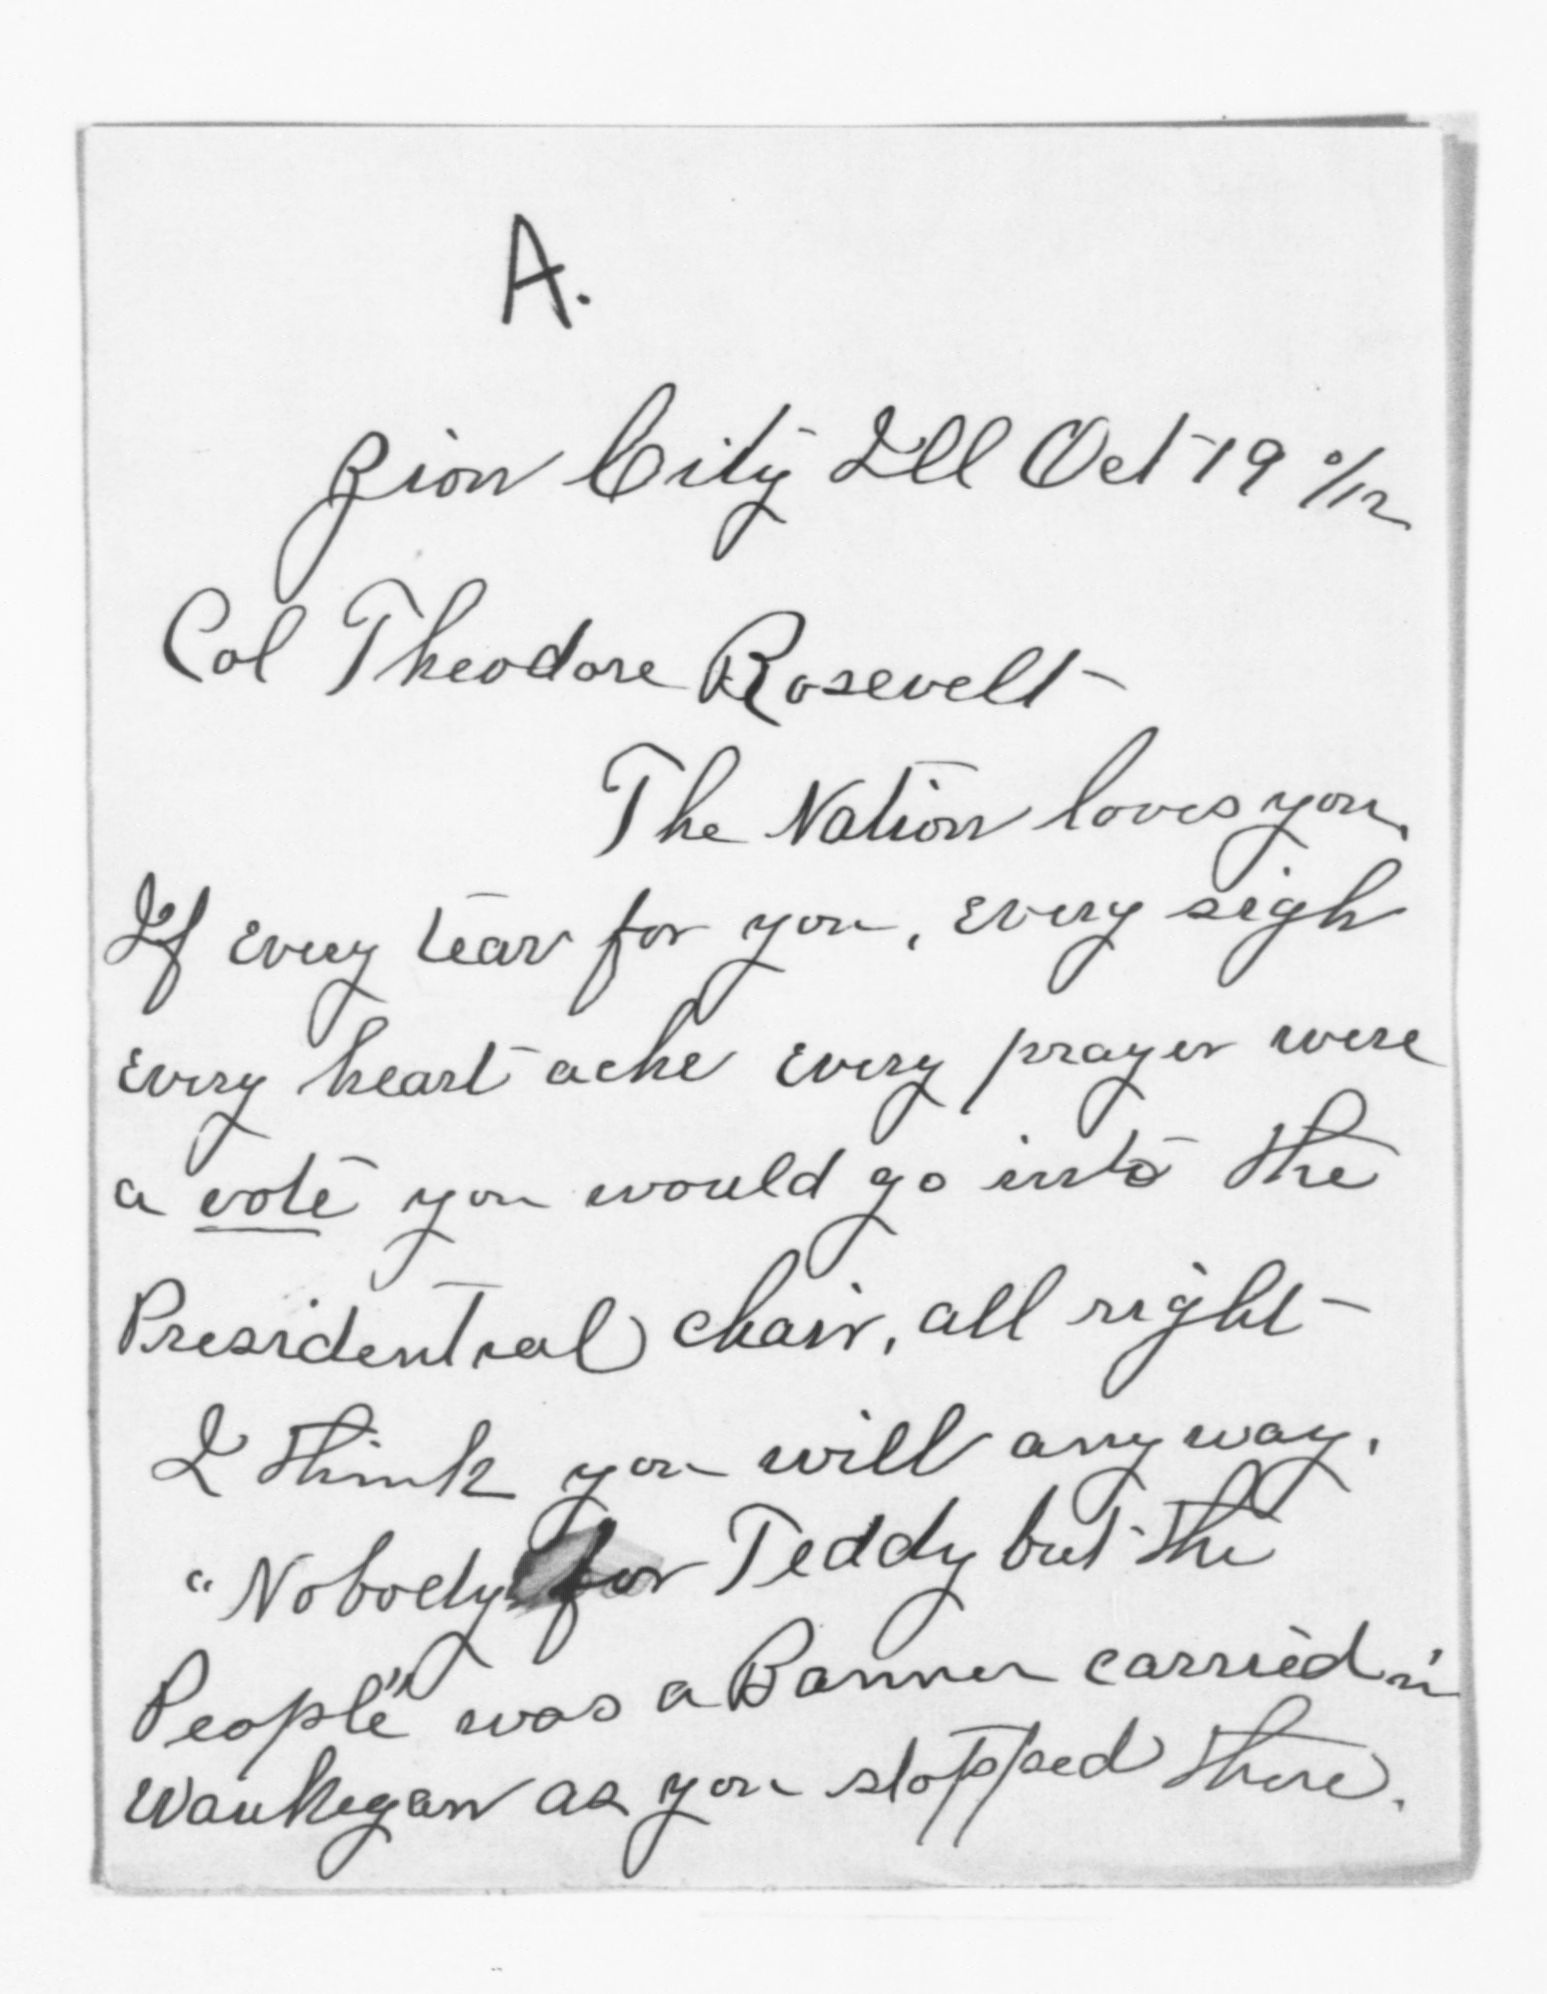 A.
Zion City Ill Oct 19 9/12
Col Theodore Rosevelt
The Nation loves you.
If every tear for you, every sigh
every heart ache every prayer were
a vote you would go into the
Presidential chair, all right
I think you will any way.
"Nobody for Teddy but the
People" was a Banner carried in
Waukegan as you stopped there.